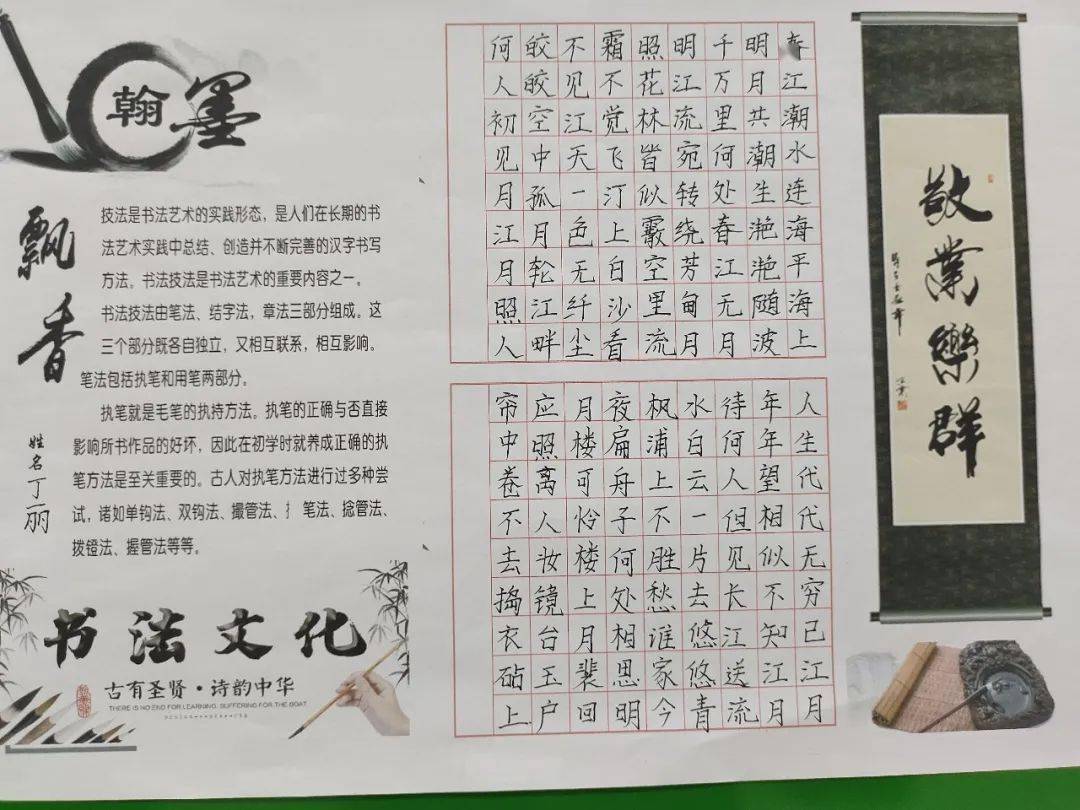 翰墨
飘香
技法是书法艺术的实践形态，是人们在长期的书
法艺术实践中总结、创造并不断完善的汉字书写
方法。书法技法是书法艺术的重要内容之一。
书法技法由笔法、结字法，章法三部分组成。这
三个部分既各自独立，又相互联系，相互影响。
笔法包括执笔和用笔两部分。
执笔就是毛笔的执持方法。执笔的正确与否直接
影响所书作品的好坏，因此在初学时就养成正确的执
笔方法是至关重要的。古人对执笔方法进行过多种尝
试，诸如单钩法、双钩法、撮管法、扌 笔法、捻管法、
拨镫法、握管法等等。
姓名丁丽
书法文化
古有圣贤·诗韵中华
THERE IS NO END FOR LEARNING. SUFFERING FOR THE BOAT
春江潮水连海平海上
明月共潮生滟滟随波
千万里何处春江无月
明江流宛转绕芳甸月
照花林皆似霰空里流
霜不觉飞汀上白沙看
不见江天一色无纤尘
皎皎空中孤月轮江畔
何人初见月江月照人
人生代代无穷已江月
年年望相似不知江月
待何人但见长江送流
水白云一片去悠悠青
枫浦上不胜愁谁家今
夜扁舟子何处相思明
月楼可怜楼上月裴回
应照离人妆镜台玉户
帘中卷不去捣衣砧上
敬業樂群